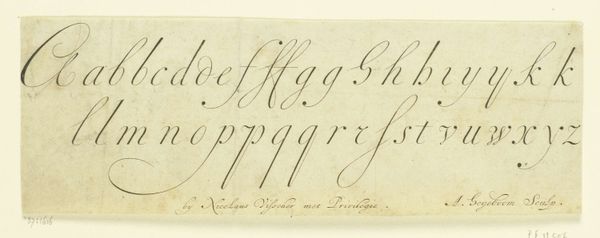 A a b b c d d e f ff g g G h h ı y y k k
l l m n o p p q q r r ſ s t v u w x y z
by Nicolaus Visscher met Privilegie. A. Hogeboom Sculp.